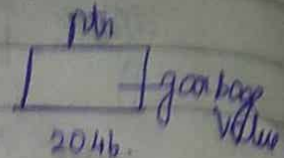 ptr
garbage
value
2046